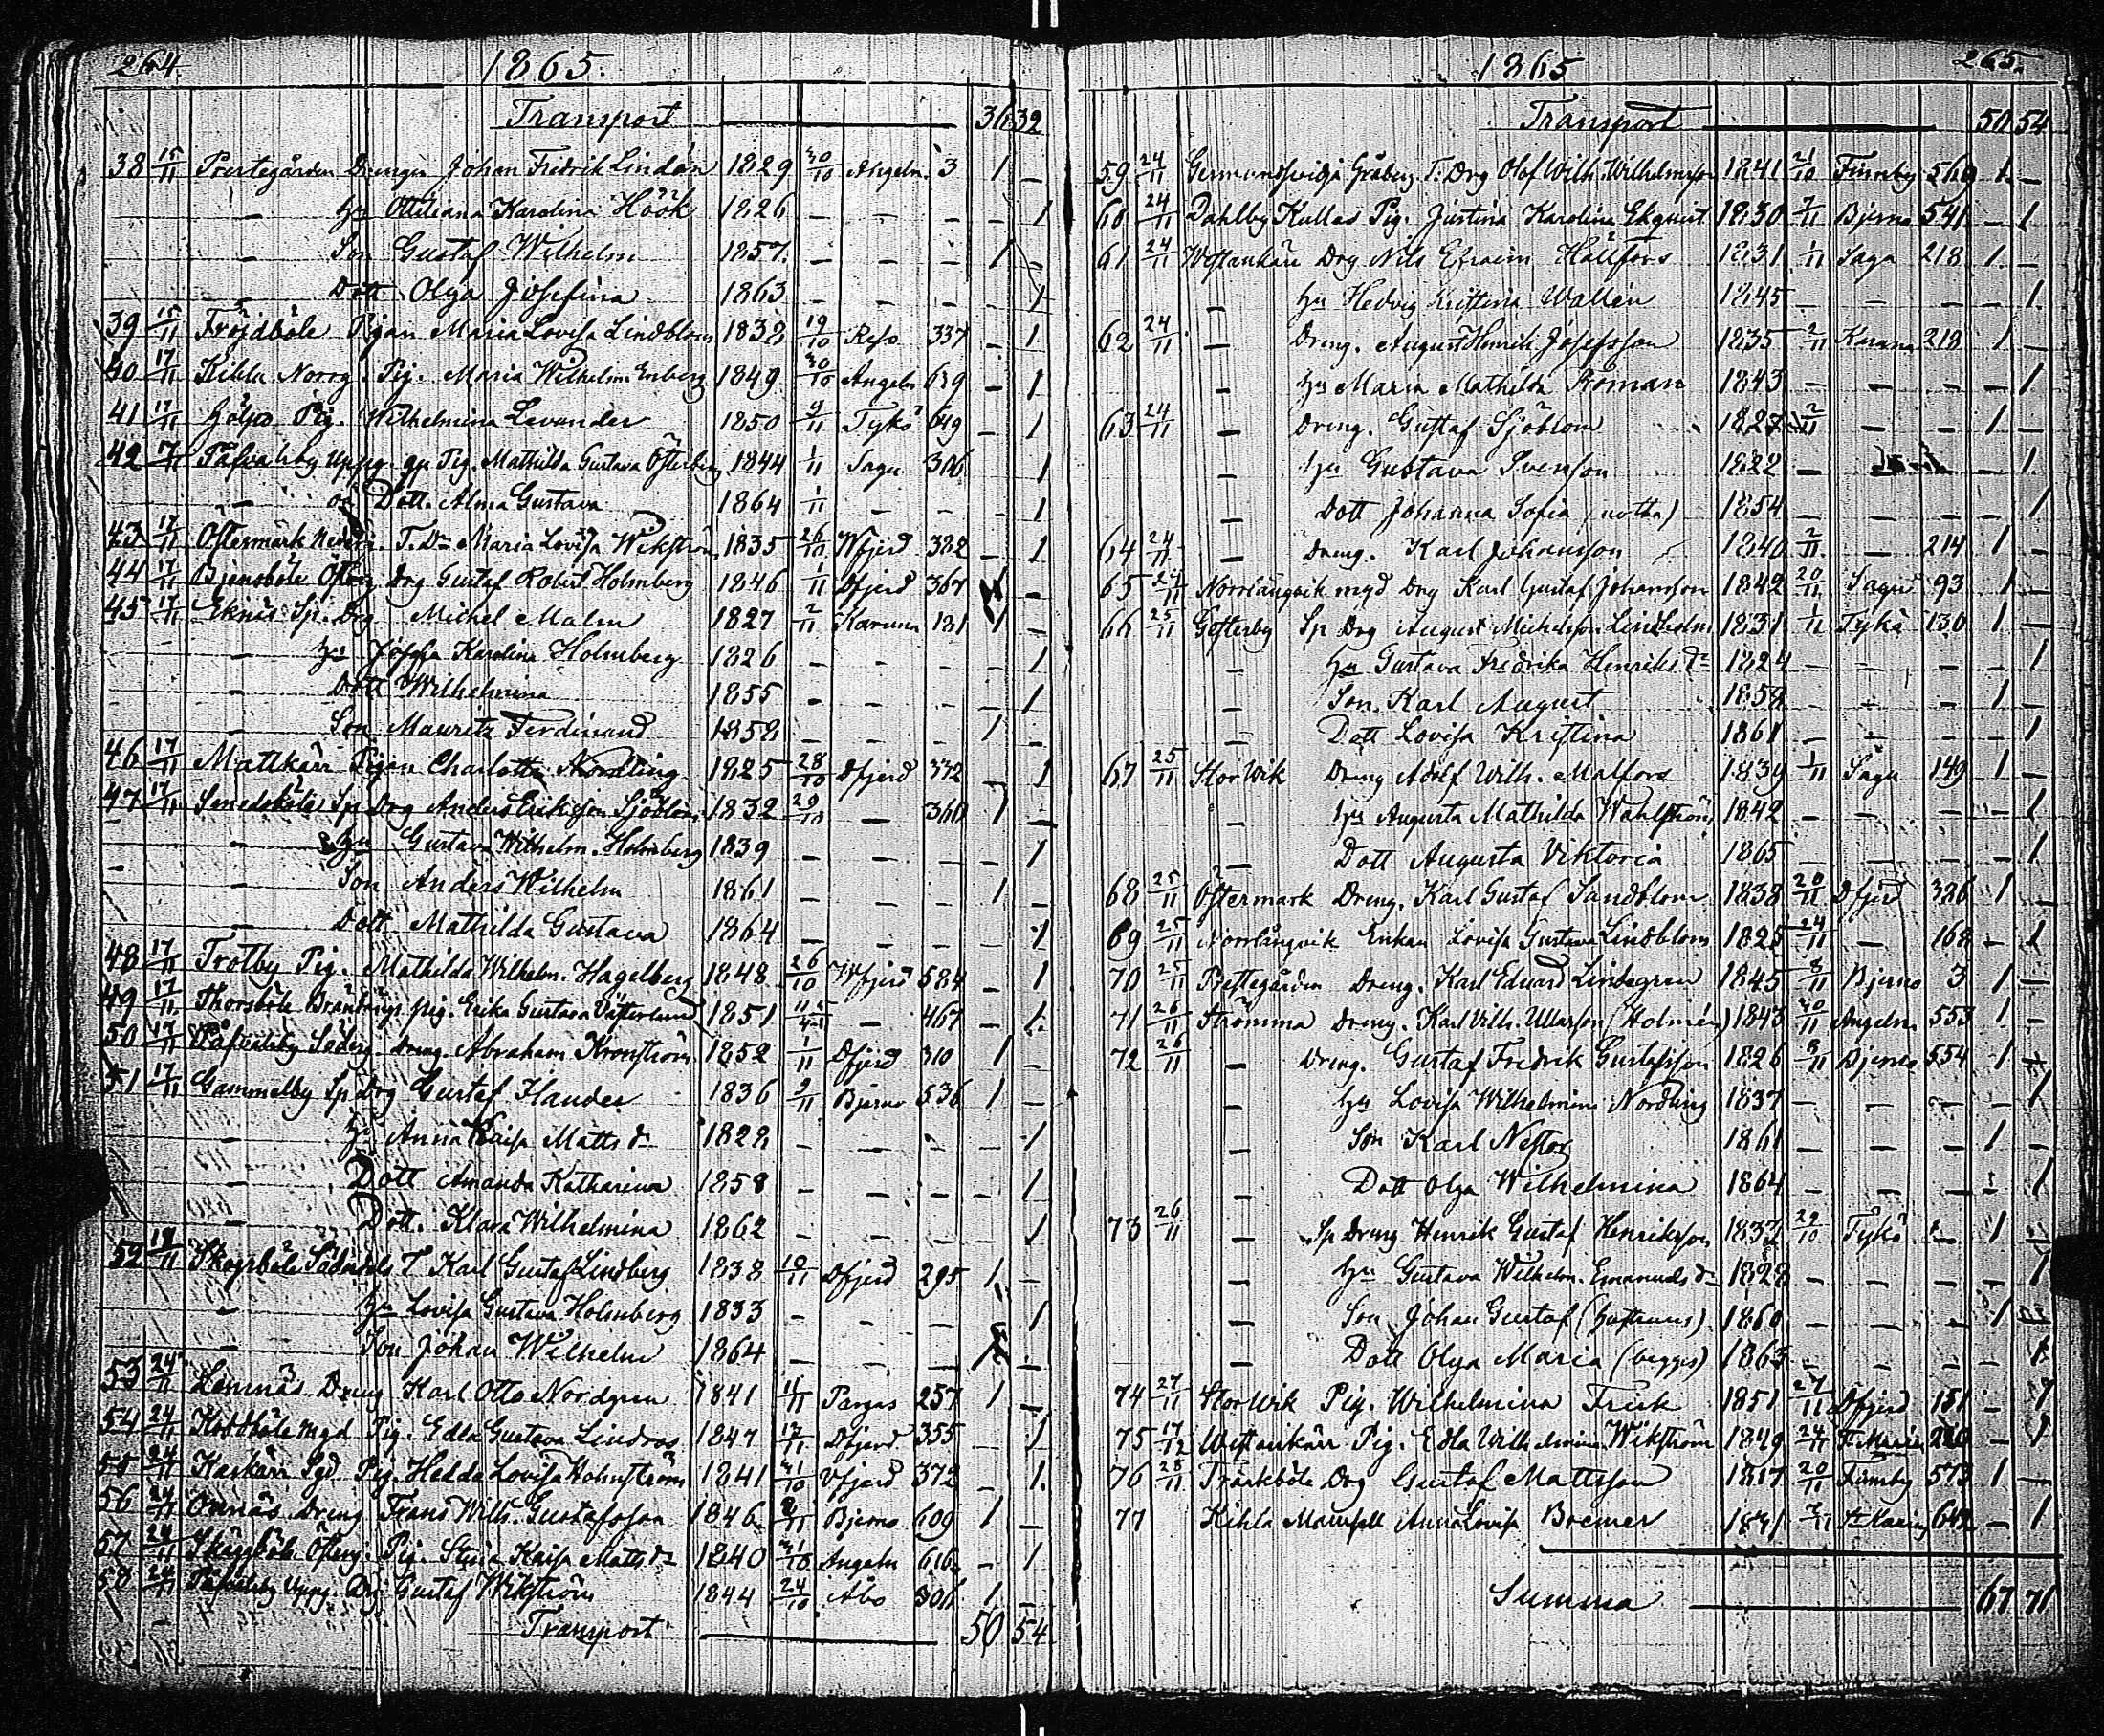 264. 1865.
Transport 36 32
38 15/11 Prestegården Drengen Johan Fredrik Lindén 1829 30/10 Angeln. 3 1 –
– hu Ottiliana Karolina Höök 1826 – – – – 1
– Son Gustaf Wilhelm 1857 – – – 1 –
– Dott Olga Josefina 1863 – – – – 1
39 15/11 Fröjdböle Pigan Maria Lovisa Lindblom 1832 19/10 337 – 1
40 17/11 Kihla Norrg. Pig. Maria Wilhelm. Enberg 1849 30/10 Angeln 639 – 1
41 17/11 Pig. Wilhelmina Lavander 1850 4/11 Tykö 649 – 1
42 17/11 Påfvalsby Uppg. Pig. Mathilda Gustava Österberg 1844 1/11 Sagu 306 1
– Dott. Alma Gustava 1864 1/11 – – – 1
43 17/11 Östermark Maria Lovisa Wikström 1835 26/10 Wfjerd 382 – 1
44 17/11 Drg Gustaf Robert Holmberg 1846 1/11 Dfjerd 367 –
45 17/11 Eknäs Sp. Drg Michel Malm 1827 2/11 Karuna 181 1 –
– hu Josefa Karolina Holmberg 1826 – – – – 1
– Dott Wilhelmina 1855 – – – – 1
– Son Mauritz Ferdinand 1858 – – – 1 –
46 17/11 Mattkärr Pigan Charlotta Nordling 1825 28/10 Dfjerd 332 – 1
47 17/11 Sp Drg Anders Eriksson Sjöblom 1832 29/10 – 360 1 –
– hu Gustava Wilhelm. Holmberg 1839 – – – – 1
– Son Anders Wilhelm 1861 – – – 1 –
– Dott Mathilda Gustava 1864 – – – – 1
48 17/11 Trotby Pig. Mathilda Wilhelm. Hagelberg 1848 26/10 Wfjerd 584 – 1
49 17/11 Thorsböle pig. Erika Gustava Västerlund 1851 – 467 – 1
50 17/11 Påfvalsby Söderg. Dreng. Abraham Kronström 1852 1/11 Dfjerd 310 1 –
51 17/11 Gammelby Sp Drg Gustaf Hander 1836 2/11 Bjerno 536 1 –
– hu Anna Kaisa Matts dr 1822 – – – – 1
– Dott Amanda Katharina 1858 – – – – 1
– Dott. Klara Wilhelmina 1862 – – – – 1
52 Skogsböle T Karl Gustaf Lindberg 1838 Dfjerd 295 1 –
– hu Lovisa Gustava Holmberg 1833 – – – – 1
– Son Johan Wilhelm 1864 – – – –
53 24/11 Lemnäs Dreng Karl Otto Nordgren 1841 11/11 Pargas 257 1 –
54 24/11 Koddböle mgd Pig. Edla Gustava Lindros 1847 17/11 Dfjerd 355 – 1
55 24/11 Kaskärr Pig. Hedda Lovisa Holmström 1841 31/10 372 – 1
56 24/11 Önnäs Dreng Frans Wilh. Gustafsson 1846 2/11 Bjerno 609 1 –
57 24/11 Skäggböle Österg. Pig. Kaisa Matts dr 1840 31/10 Angeln 616 – 1
58 24/11 Påfvalsby Uppg. Drg Gustaf Wikström 1844 24/10 Åbo 306 1 –
Transport 50 54
1865 265.
Transport 50 54
59 24/11 Gråberg T. Drg Olof Wilh. Wilhelmsson 1841 21/10 Finnby 569 1 –
60 24/11 Dahlby Kullas Pig. Justina Karolina Ekqvist 1830 2/11 Bjerno 541 – 1
61 24/11 Westankärr Drg Nils Efraim Hällfors 1831 1/11 Sagu 218 1 –
– hu Hedvig Kristina Wallén 1845 – – – – 1
62 24/11 – Dreng. August Henrik Josefsson 1835 2/11 Karuna 218 1 –
– hu Maria Mathilda Roman 1843 – – – – 1
63 24/11 – Dreng. Gustaf Sjöblom 1827 2/11 – – 1 –
– hu Gustava Svenson 1822 – – – 1
– Dott Johanna Sofia (notha) 1854 – – – – 1
64 24/11 – Dreng. Karl Johansson 1840 2/11 – 214 1 –
65 24/11 Norrlångvik mgd Drg Karl Gustaf Johansson 1842 20/11 Sagu 93 1 –
66 25/11 Gesterby Sp Drg August Michelsson Lindholm 1831 1/11 Tykö 130 1 –
– hu Gustava Fredrika Henriks dr 1824 – – – – 1
– Son Karl August 1858 – – – 1 –
– Dott Lovisa Kristina 1861 – – – – 1
67 25/11 Storwik Dreng Adolf Wilh. Malfors 1839 1/11 Sagu 149 1 –
– hu Augusta Mathilda Wahlström 1842 – – – – 1
– Dott Augusta Viktoria 1865 – – – – 1
68 25/11 Östermark Dreng. Karl Gustaf Sandblom 1838 20/11 Dfjerd 386 1 –
69 25/11 Norrlångvik Enkan Lovisa Gustava Lindblom 1825 24/11 – 168 – 1
70 25/11 Prestegården Dreng. Karl Eduard Lindegren 1845 8/11 Bjerno 3 1 –
71 26/11 Strömma Dreng. Karl Wilh. Ullarson (Holmén) 1843 30/11 Angeln 553 1 –
72 26/11 – Dreng. Gustaf Fredrik Gustafsson 1826 8/11 Bjerno 554 1 –
– hu Lovisa Wilhelmina Nordling 1837 – – – – 1
– Son Karl Nestor 1861 – – – 1 –
– Dott Olga Wilhelmina 1864 – – – – 1
73 26/11 – Sp Dreng Henrik Gustaf Henriksson 1832 29/10 Tykö – 1 –
– hu Gustava Wilhelm. Emanuels dr 1828 – – – – 1
– Son Johan Gustaf (hustruns) 1860 – – – 1
– Dott Olga Maria (begges) 1863 – – – – 1
74 27/11 Storwik Pig. Wilhelmina Frisk 1851 27/11 Dfjerd 151 – 1
75 17/12 Westankärr Pig. Edla Wilhelmina Wikström 1849 24/11 St Marie 220 – 1
76 28/11 Träskböle Drg Gustaf Mattsson 1817 20/11 Finnby 573 1 –
77 Kihla Mamsell Anna Lovisa Bremer 642 – 1
Summa 67 71